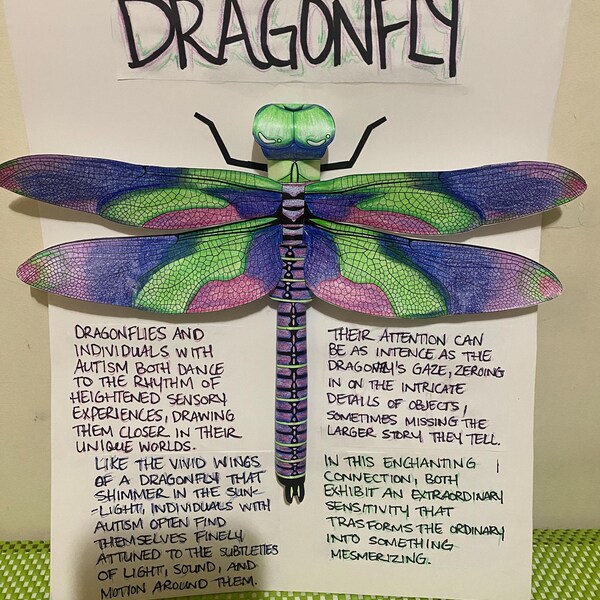 DRAGONFLY
DRAGONFLIES AND
INDIVIDUALS WITH
AUTISM BOTH DANCE
TO THE RHYTHM OF
HEIGHTENED SENSORY
EXPERIENCES, DRAWING
THEM CLOSER IN THEIR
UNIQUE WORLDS.
LIKE THE VIVID WINGS
OF A DRAGONFLY THAT
SHIMMER IN THE SUN-
-LIGHT, INDIVIDUALS WITH
AUTISM OFTEN FIND
THEMSELVES FINELY
ATTUNED TO THE SUBTLETIES
OF LIGHT, SOUND, AND
MOTION AROUND THEM.
THEIR ATTENTION CAN
BE AS INTENCE AS THE
DRAGONFLY'S GAZE, ZEROING
IN ON THE INTRICATE
DETAILS OF OBJECTS,
SOMETIMES MISSING THE
LARGER STORY THEY TELL.
IN THIS ENCHANTING
CONNECTION, BOTH
EXHIBIT AN EXTRAORDINARY
SENSITIVITY THAT
TRASFORMS THE ORDINARY
INTO SOMETHING
MESMERIZING.